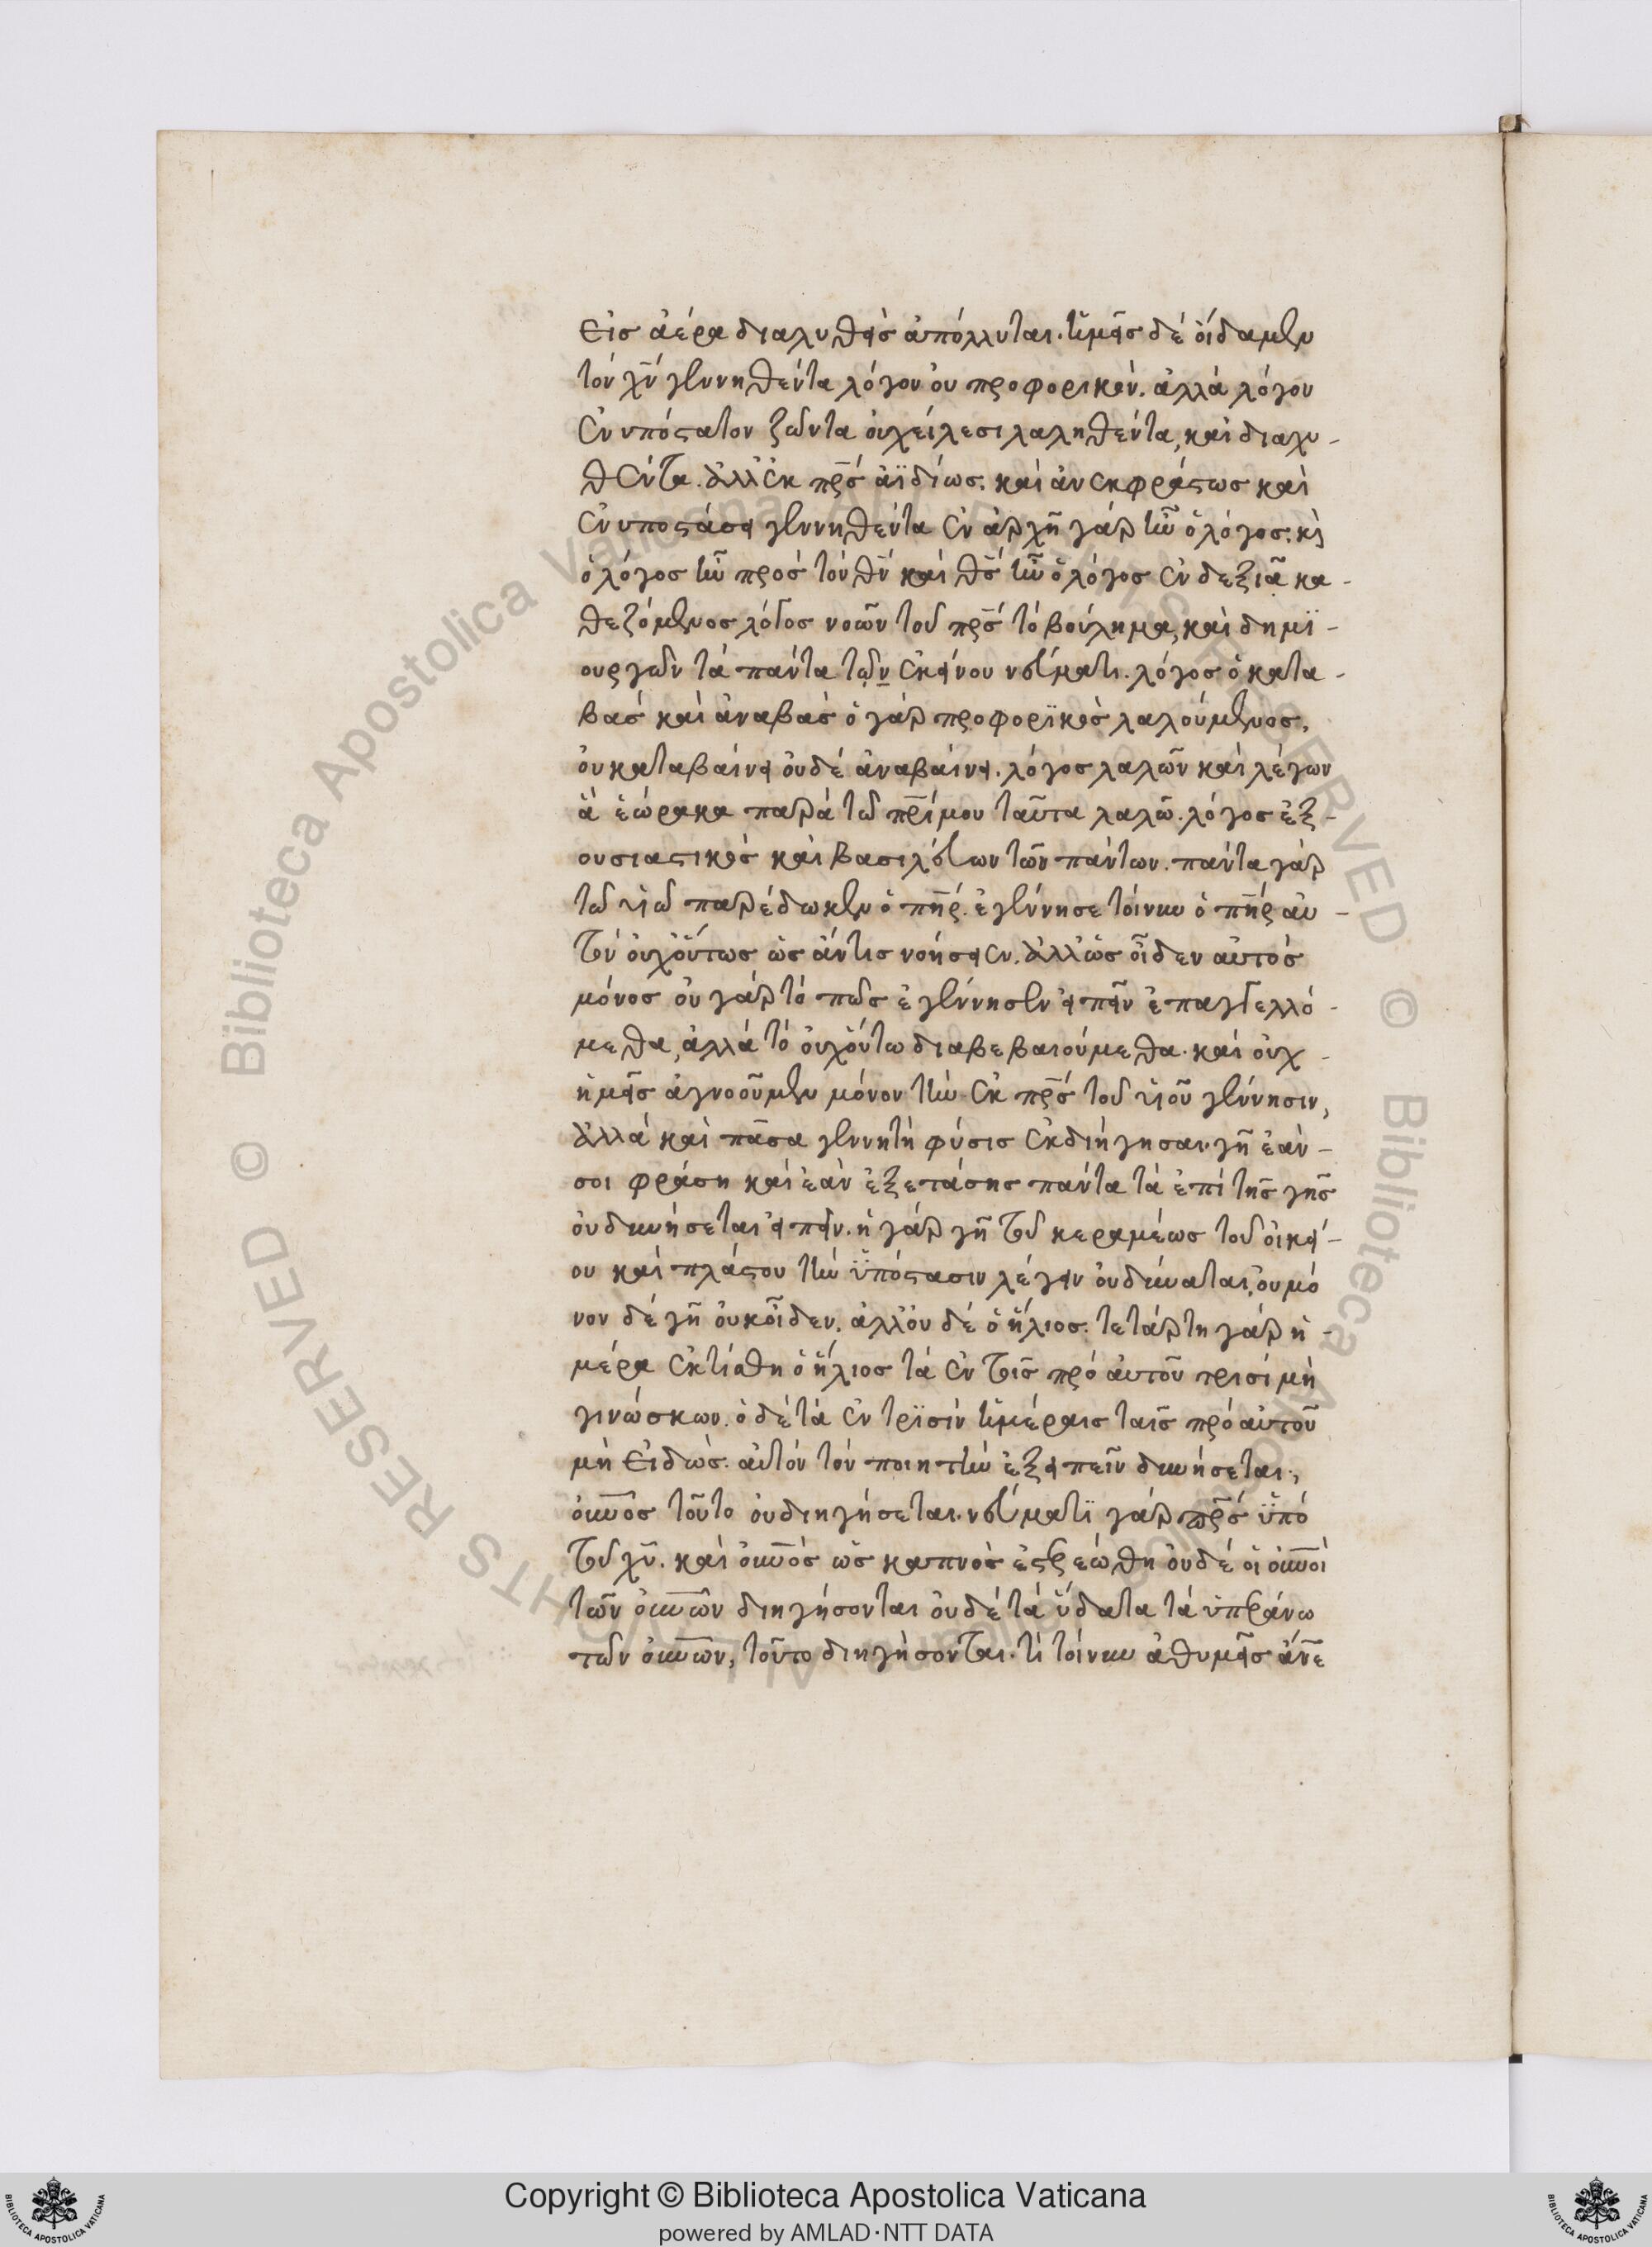 εἰς ἀέρα διαλυθεὶς ἀπόλλυται. ἡμεῖς δὲ οἴδαμεν
τὸν χν̅ γεννηθέντα λόγον οὐ προφορικόν. ἀλλὰ λόγον
ἐνυπόστατον ζῶντα οὐ χείλεσι λαληθέντα, καὶ διαχυ-
θέντα. ἀλλ' ἐκ πρ̅ς ἀϊδίως. καὶ ἀνεκφράστως καὶ
ἐν υποστάσει γεννηθέντα ἐν ἀρχῇ γὰρ ἦν ὁ λόγος. κὶ
ὁ λόγος ἦν προς τὸν θν̅ καὶ θς̅ ἦν ὁ λόγος ἐν δεξιᾷ κα-
θεζόμενος λόγος νοῶν τοῦ πρ̅ς τὸ βούλημα, καὶ δημϊ-
ουργῶν τὰ πάντα τῶν ἐκείνου νεύματι. λόγος ὁ κατα-
βὰς καὶ ἀναβὰς ὁ γὰρ προφορϊκὸς λαλούμενος,
οὐ καταβαίνει οὐδὲ ἀναβαίνει. λόγος λαλῶν καὶ λέγων
ἃ ἑώρακα παρὰ τῶ πρ̅ί μου ταῦτα λαλῶ. λόγος ἐξ-
ουσιαστικὸς καὶ βασιλεύων τῶν πάντων. πάντα γὰρ
τῶ υἱῶ παρέδωκεν ὁ πη̅ρ. ἐγέννησε τοίνυν ὁ πη̅ρ αὐ-
τὸν οὐχ οὕτως ὡς ἄν τις νοήσειεν. ἀλλ' ὡς οἶδεν αὐτὸς
μόνος οὐ γὰρ τὸ πῶς ἐγέννησεν εἰπεῖν ἐπαγγελλό-
μεθα, ἀλλὰ τὸ οὐχ οὕτω διαβεβαιούμεθα. καὶ οὐχ
ἡμεῖς ἀγνοοῦμεν μόνον τὴν ἐκ πρ̅ς τοῦ υἱοῦ γέννησιν,
ἀλλὰ καὶ πᾶσα γεννητὴ φύσις ἐκδιήγησαι. γῆ ἐάν-
σοι φράση καὶ ἐὰν ἐξετάσης πάντα τὰ ἐπὶ τῆς γῆς
οὐ δυνήσεται εἰπεῖν. ἡ γὰρ γῆ τοῦ κεραμέως τοῦ οἰκεί-
ου καὶ πλάστου τὴν ὑπόστασιν λέγειν οὐ δύναται, οὐ μό
νον δὲ γῆ οὐκ οἶδεν. ἀλλ' οὐ δὲ ὁ ἥλιος. τετάρτη γὰρ ἡ-
μέρα ἐκτίσθη ὁ ἥλιος τὰ ἐν τοῖς πρὸ αὐτοῦ τρισὶ μὴ
γινώσκων. ὁ δὲ τὰ ἐν τρϊσὶν ἡμέραις ταῖς πρὸ αὐτοῦ
μὴ εἰδὼς. αὐτὸν τὸν ποιητὴν ἐξειπεῖν δυνήσεται.,
οὐν̅ος τοῦτο οὐ διηγήσεται. νεύματϊ γὰρ πρ̅ς ὑπὸ
τοῦ χυ̅. καὶ οὐν̅ὸς ὡς καπνὸς ἐστερεώθη οὐδὲ οἱ οὐν̅οὶ
τῶν οὐν̅ῶν διηγήσονται οὐδὲ τὰ ὕδατα τὰ ὑπεράνω
τῶν οὐν̅ῶν, τοῦτο διηγήσονται. τί τοίνυν ἀθυμεῖς ἄν̅ε
Copyright © Biblioteca Apostolica Vaticana
powered by AMLAD·NTT DATA